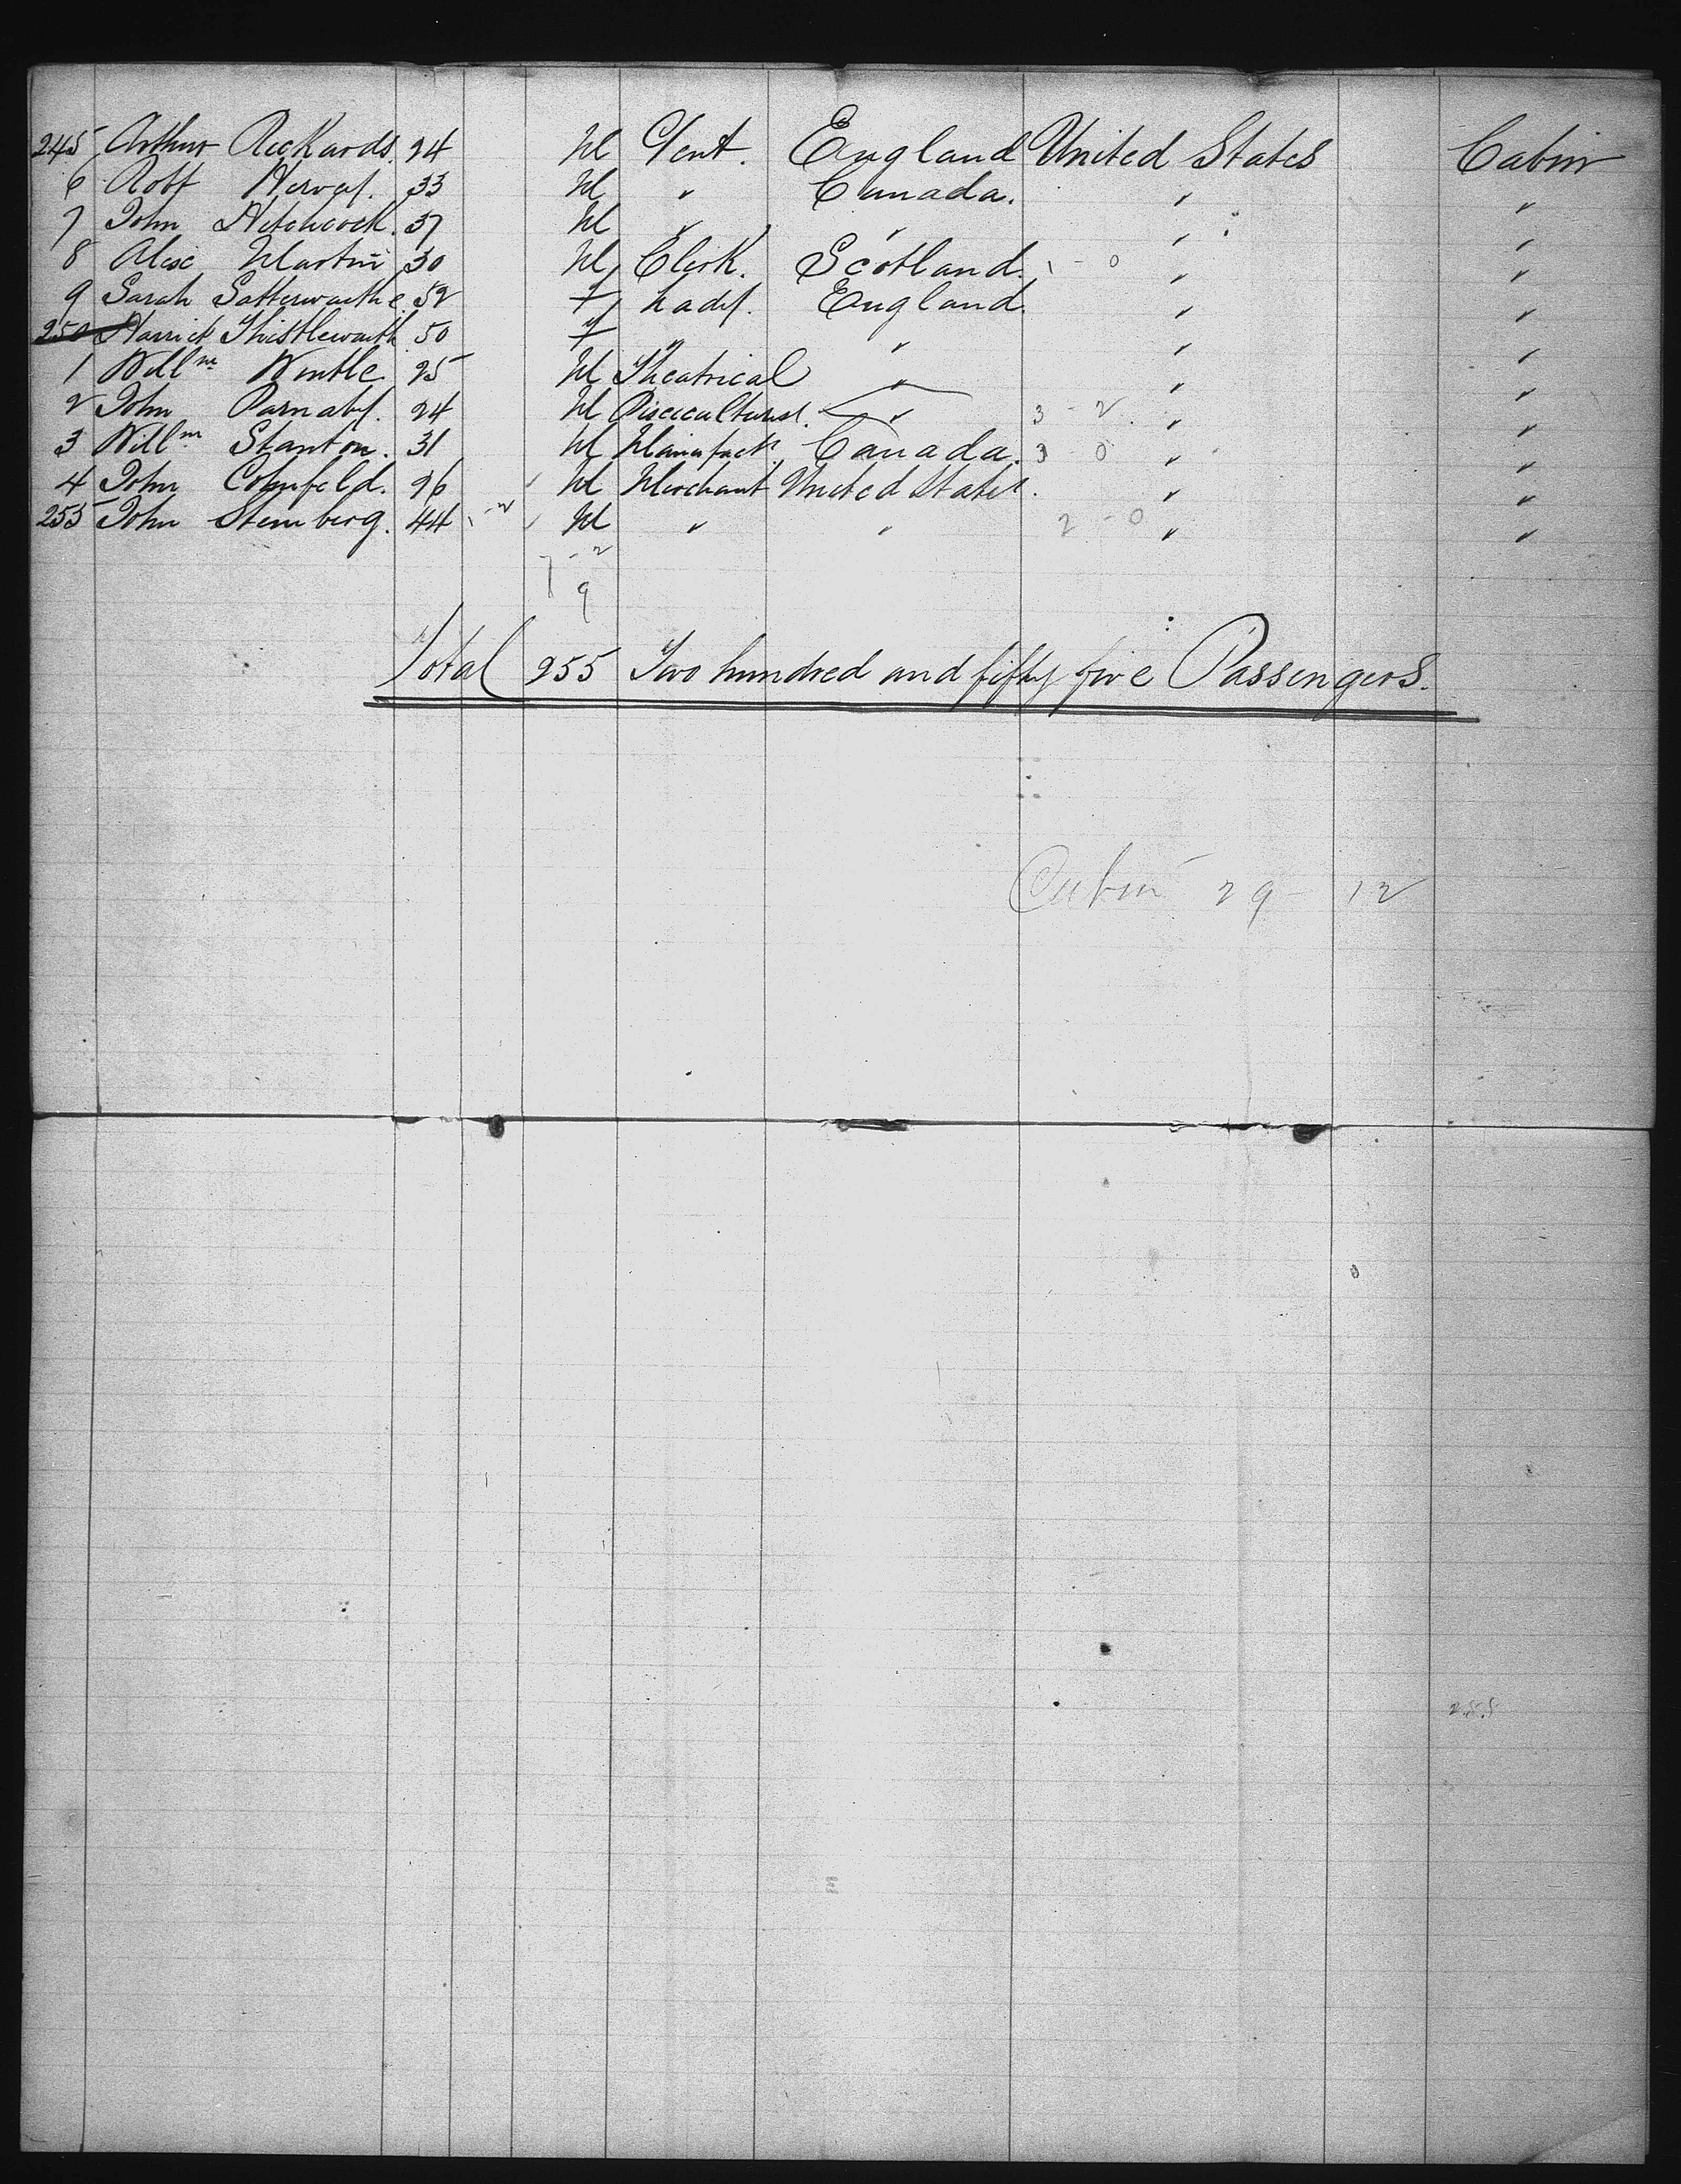 245 Arthur Rickards. 24 M Gent. England United States Cabin
6 Robt Hervey. 33 M " Canada. " "
7 John Hitchcock. 37 M " " " "
8 Alex Martin 30 M Clerk. Scotland. 1 - 0 " "
9 Sarah Satterwaithe 52 f Lady. England. " "
250 Harriet Thistlewaith 50 f " " " "
1 Willm Wintle 25 M Theatrical " " "
2 John Parnaby. 24 M Pisciculturist. " 3 - 2 " "
3 Willm Stanton. 31 M Manufactr. Canada. 3 - 0 " "
4 John Cohnfeld. 26 M Merchant United States. " "
255 John Steinberg. 44 1 - 2 M " " 2 - 0 " "
7 - 2
9
Total 255 Two hundred and fifty five Passengers.
Cabin 29 - 12
255